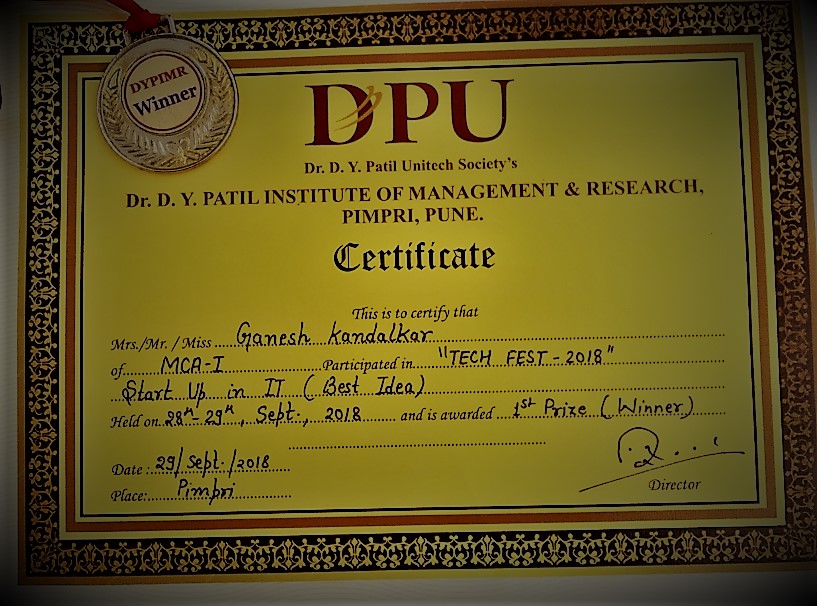 DYPIMR
Winner
DPU
Dr. D. Y. Patil Unitech Society's
Dr. D. Y. PATIL INSTITUTE OF MANAGEMENT & RESEARCH,
PIMPRI, PUNE.
Certificate
This is to certify that
Mrs./Mr. / Miss Ganesh Kandalkar
of MCA-I Participated in "TECH FEST - 2018"
Start Up in IT ( Best Idea)
Held on 28th - 29th, Sept., 2018 and is awarded 1st Prize ( Winner)
Date : 29/Sept./2018
Place: Pimpri
Director